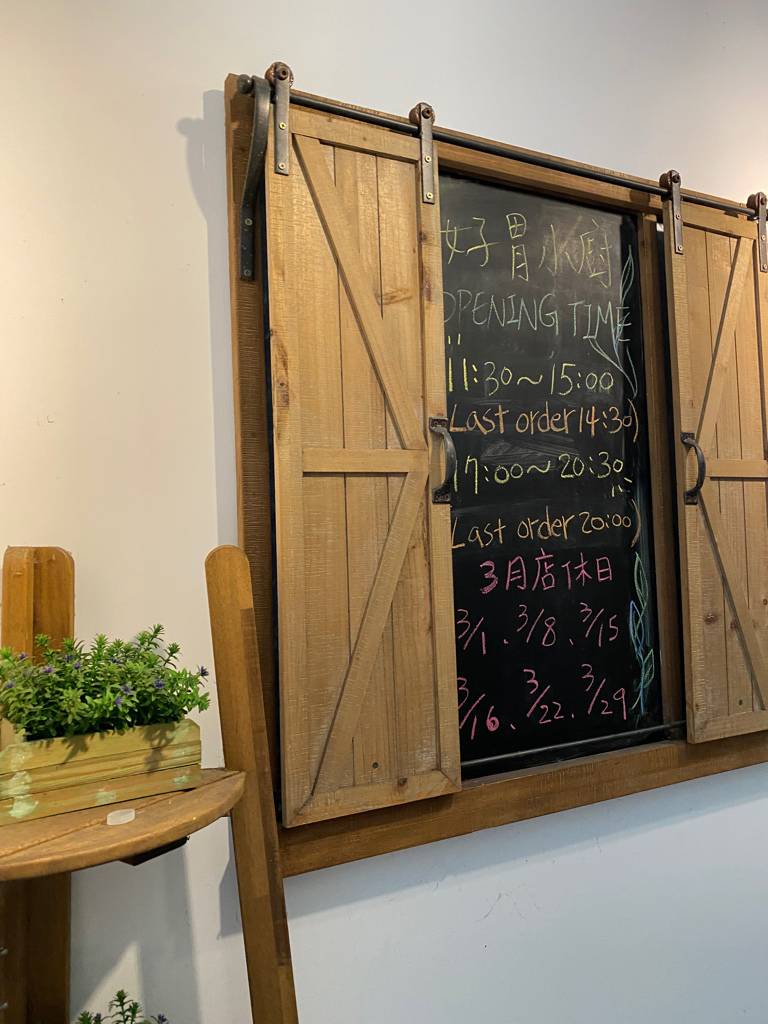 好胃小廚
OPENING TIME
11:30~15:00
(Last order 14:30)
17:00~20:30
(Last order 20:00)
3月店休日
3/1、3/8、3/15
3/16、3/22、3/29